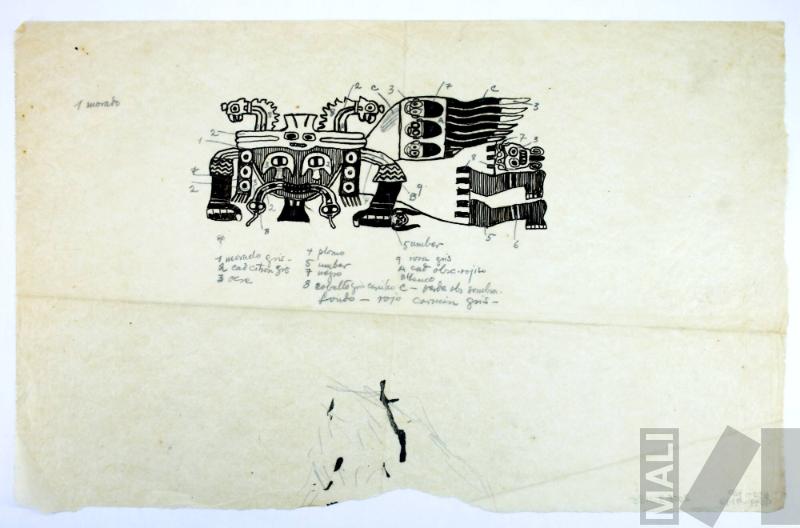 1 morado
2
C
3
7
C
3
2
1
7
3
8
4
2
9
8
2
8
5
6
1 morado gris-
2 cad citron gris
3 ocre
4 plomo
5 umber
7 negro
8 cobalto gris
5 umber
9 rosa gris
4 cad obsc. rojizo
blanco
C - verde obs sombra-
fondo - rojo carmin gris-
MALI